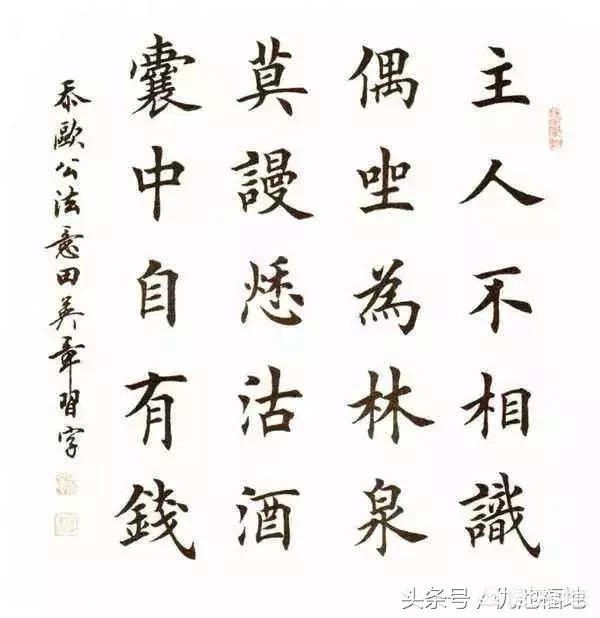 主人不相識
偶坐為林泉
莫謾愁沽酒
囊中自有錢
忝歐公法意田英章習字
头条号 / 仇池福地